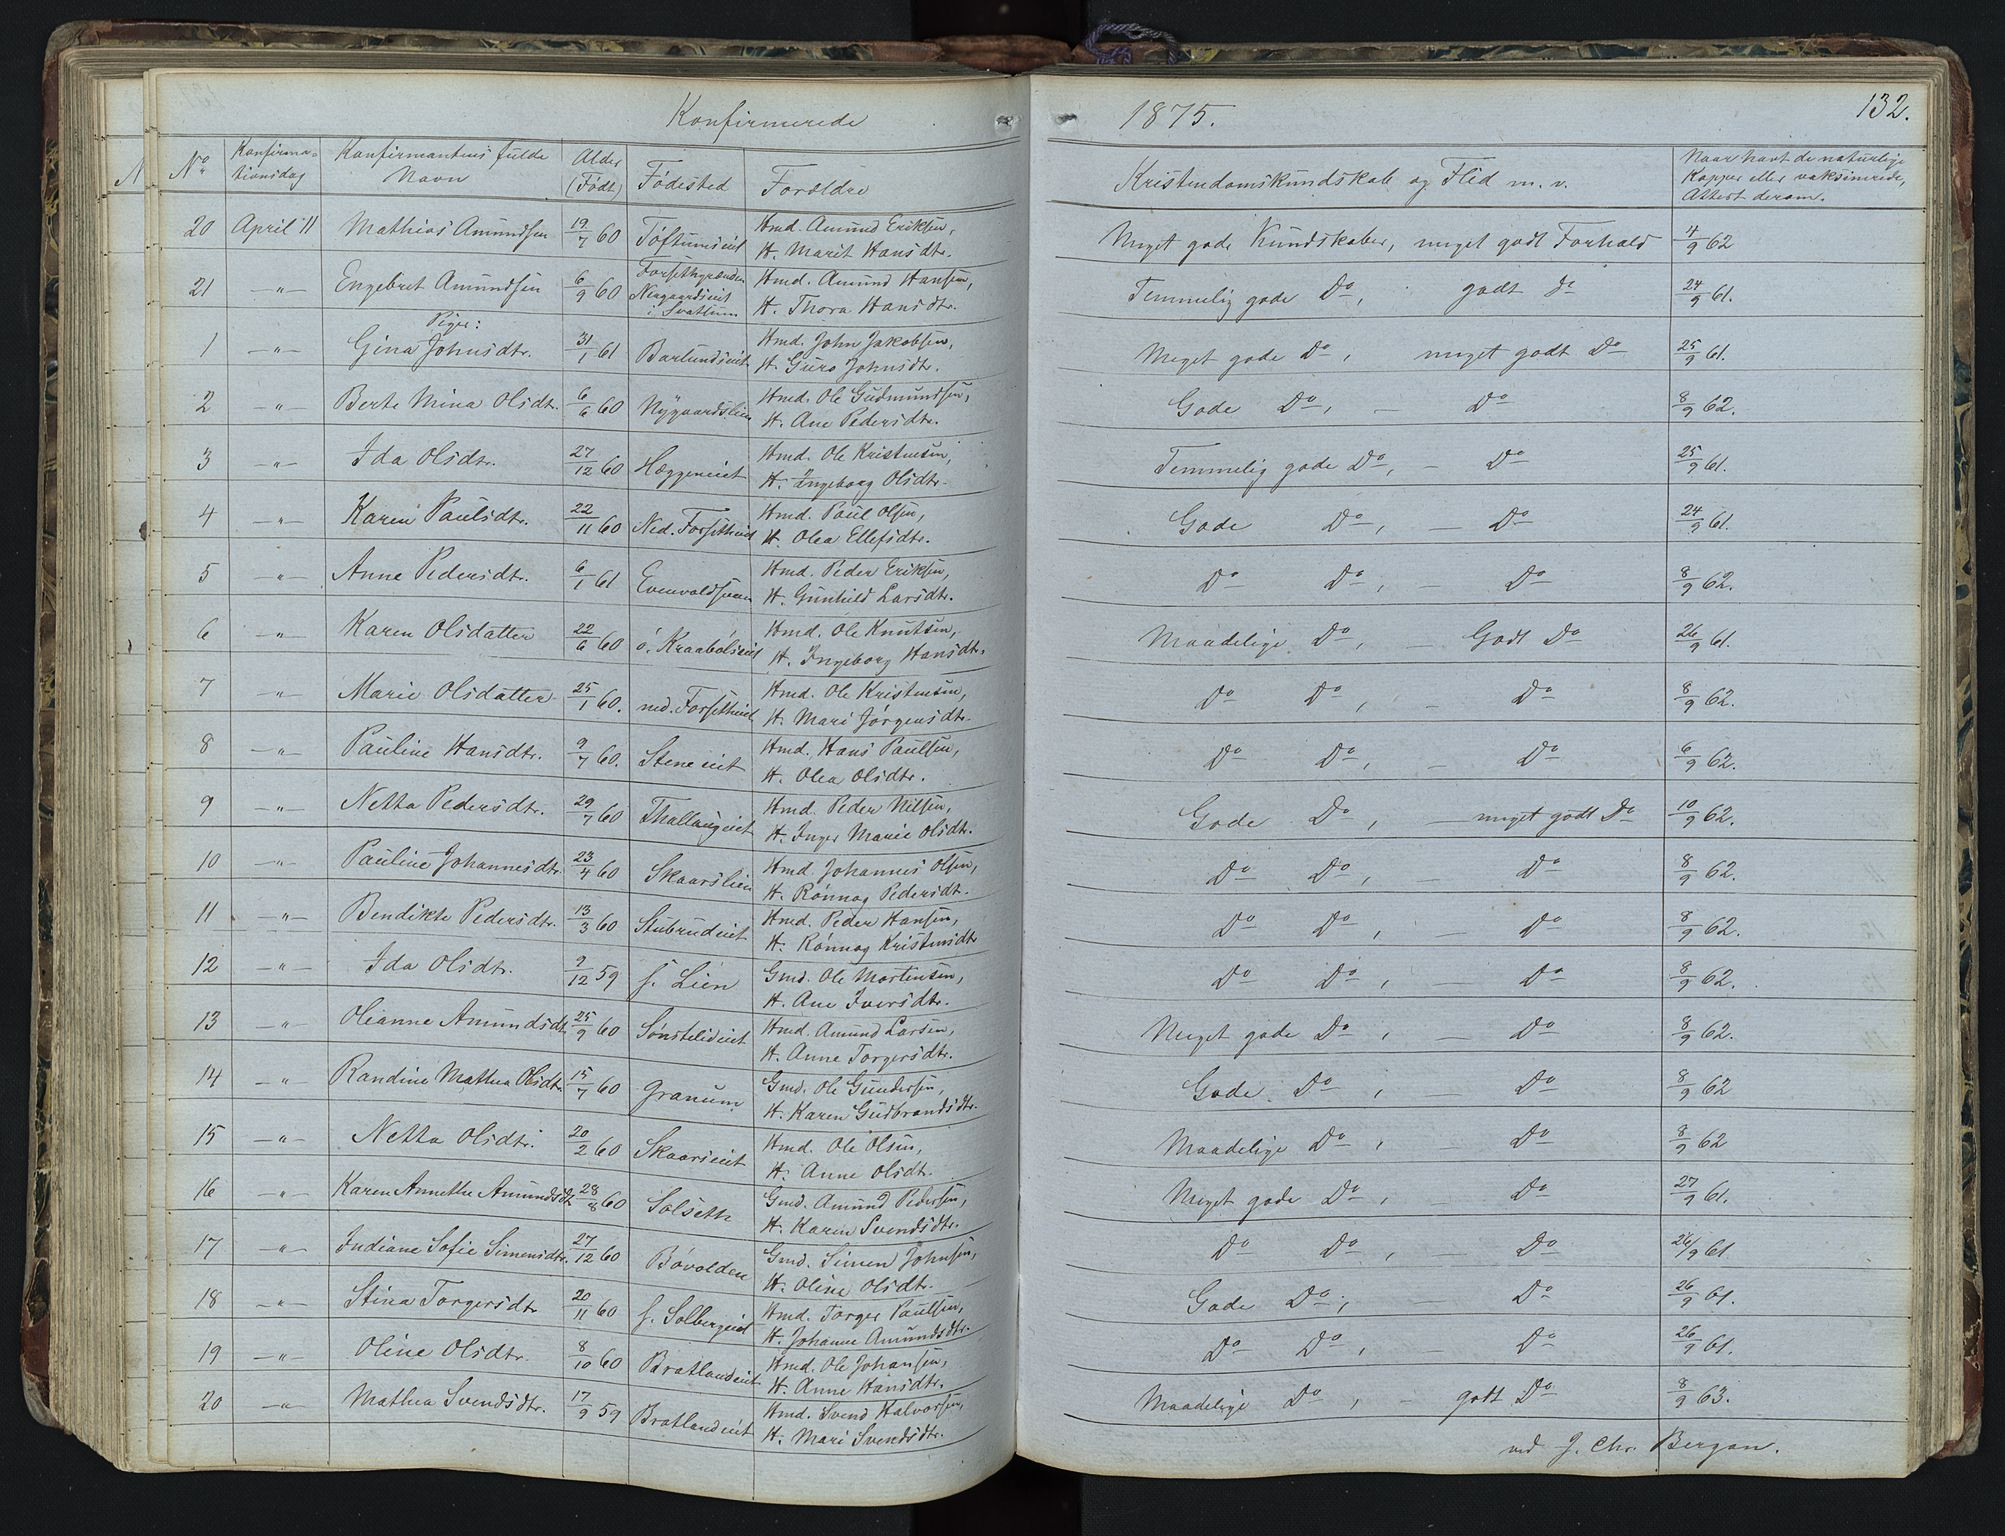 Konfirmerede 1875. 132.
No Konfirma- Konfirmantens fulde Alder Fødested Forældre Kristendomskundskab og Flid m. v. Naar havt de naturlige
tionsdag Navn (Født) Kopper eller vaksinerede,
Attest derom.
20 April 11 Mathias Amundsen 19/7 60 Toftumseiet Hmd. Amund Eriksen, Meget gode Kundskaber, meget godt Forhold 4/9 62
H. Marit Hansdtr.
21 -"- Engebret Amundsen 6/9 60 Forsethgrænden Hmd. Amund Hansen, Temmelig gode Do, godt do 24/9 61.
i Svatsum H. Thora Hansdtr.
Piger:
1 -"- Gina Johnsdtr. 31/1 61 Barlundseiet Hmd. John Jakobsen, Meget gode Do, meget godt Do 25/9 61.
H. Guro Johnsdtr.
2 -"- Berte Mina Olsdtr. 6/6 60 Nygaardslien Hmd. Ole Gudmundsen, Gode Do, - Do 8/9 62.
H. Ane Pedersdtr.
3 -"- Ida Olsdtr. 27/12 60 Hæggeneiet Hmd. Ole Kristensen, Temmelig gode Do, - Do 25/9 61.
H. Ingeborg Olsdtr.
4 -"- Karen Paulsdtr. 22/11 60 Ned. Forsetheiet Hmd. Paul Olsen, Gode Do, - Do 24/9 61.
H. Olea Ellefsdtr.
5 -"- Anne Pedersdtr. 6/1 61 Hmd. Peder Eriksen, Do Do, - Do 8/9 62.
H. Gunhild Larsdtr.
6 -"- Karen Olsdatter 22/6 60 ö. Kraabølseiet Hmd. Ole Knutsen, Maadelige Do, - Godt Do 26/9 61.
H. Ingeborg Hansdtr.
7 -"- Marie Olsdatter 25/1 60. ned. Forsetheiet Hmd. Ole Kristensen, Do Do, - Do 8/9 62.
H. Mari Jørgensdtr.
8 -"- Pauline Hansdtr. 9/7 60. Steneeiet Hmd. Hans Paulsen, Do Do, - Do 6/9 62.
H. Olea Olsdtr.
9 -"- Netta Pedersdtr. 29/7 60 Thallaugeiet Hmd. Peder Nilsen, Gode Do, - meget godt Do 10/9 62.
H. Inger Marie Olsdtr.
10 -"- Pauline Johannesdtr. 23/4 60 Skaarslien Hmd. Johannes Olsen, Do Do, - Do 8/9 62.
H. Rønnog Pedersdtr.
11 -"- Bendikte Pedersdtr. 13/3 60 Stubrudeiet Hmd. Peder Hansen, Do Do, - Do 8/9 62.
H. Rønnog Kristensdtr
12 -"- Ida Olsdtr. 9/12 59 s. Lien Gmd. Ole Mortensen, Do Do, - Do 8/9 62.
H. Ane Iversdtr.
13 -"- Oleanne Amundsdtr. 25/9 60 Sønstelideiet Hmd. Amund Larsen, Meget gode Do, - Do 8/9 62.
H. Anne Torgersdtr.
14 -"- Randine Mathea Olsdtr. 15/7 60 Granum Gmd. Ole Gundersen, Gode Do, - Do 8/9 62
H. Karen Gudbrandsdtr.
15 -"- Netta Olsdtr. 20/2 60 Skaarseiet Hmd. Ole Olsen, Maadelige Do, - Do 8/9 62
H. Anne Olsdtr.
16 -"- Karen Annethe Amundsdtr 28/8 60 Solseth Gmd. Amund Pedersen, Meget gode Do, - Do 27/9 61.
H. Karen Svendsdtr.
17 -"- Indiane Sofie Simensdtr. 27/12 60 Bøvolden Gmd. Simen Johnsen, Do Do, - Do 26/9 61
H. Oline Olsdtr.
18 -"- Stina Torgersdtr 20/11 60 s. Solbergeiet Hmd. Torger Paulsen, Gode Do, - Do 26/9 61.
H. Johanne Amundsdtr.
19 -"- Oline Olsdtr. 8/10 60 Bratlandeiet Hmd. Ole Johansen, Do Do, - Do 26/9 61.
H. Anne Hansdtr.
20 -"- Mathea Svendsdtr. 17/9 59 Bratlandeiet Hmd. Svend Halvorsen, Maadelige Do, - godt Do 8/9 63.
H. Mari Svendsdtr.
ved J. Chr. Bergan.